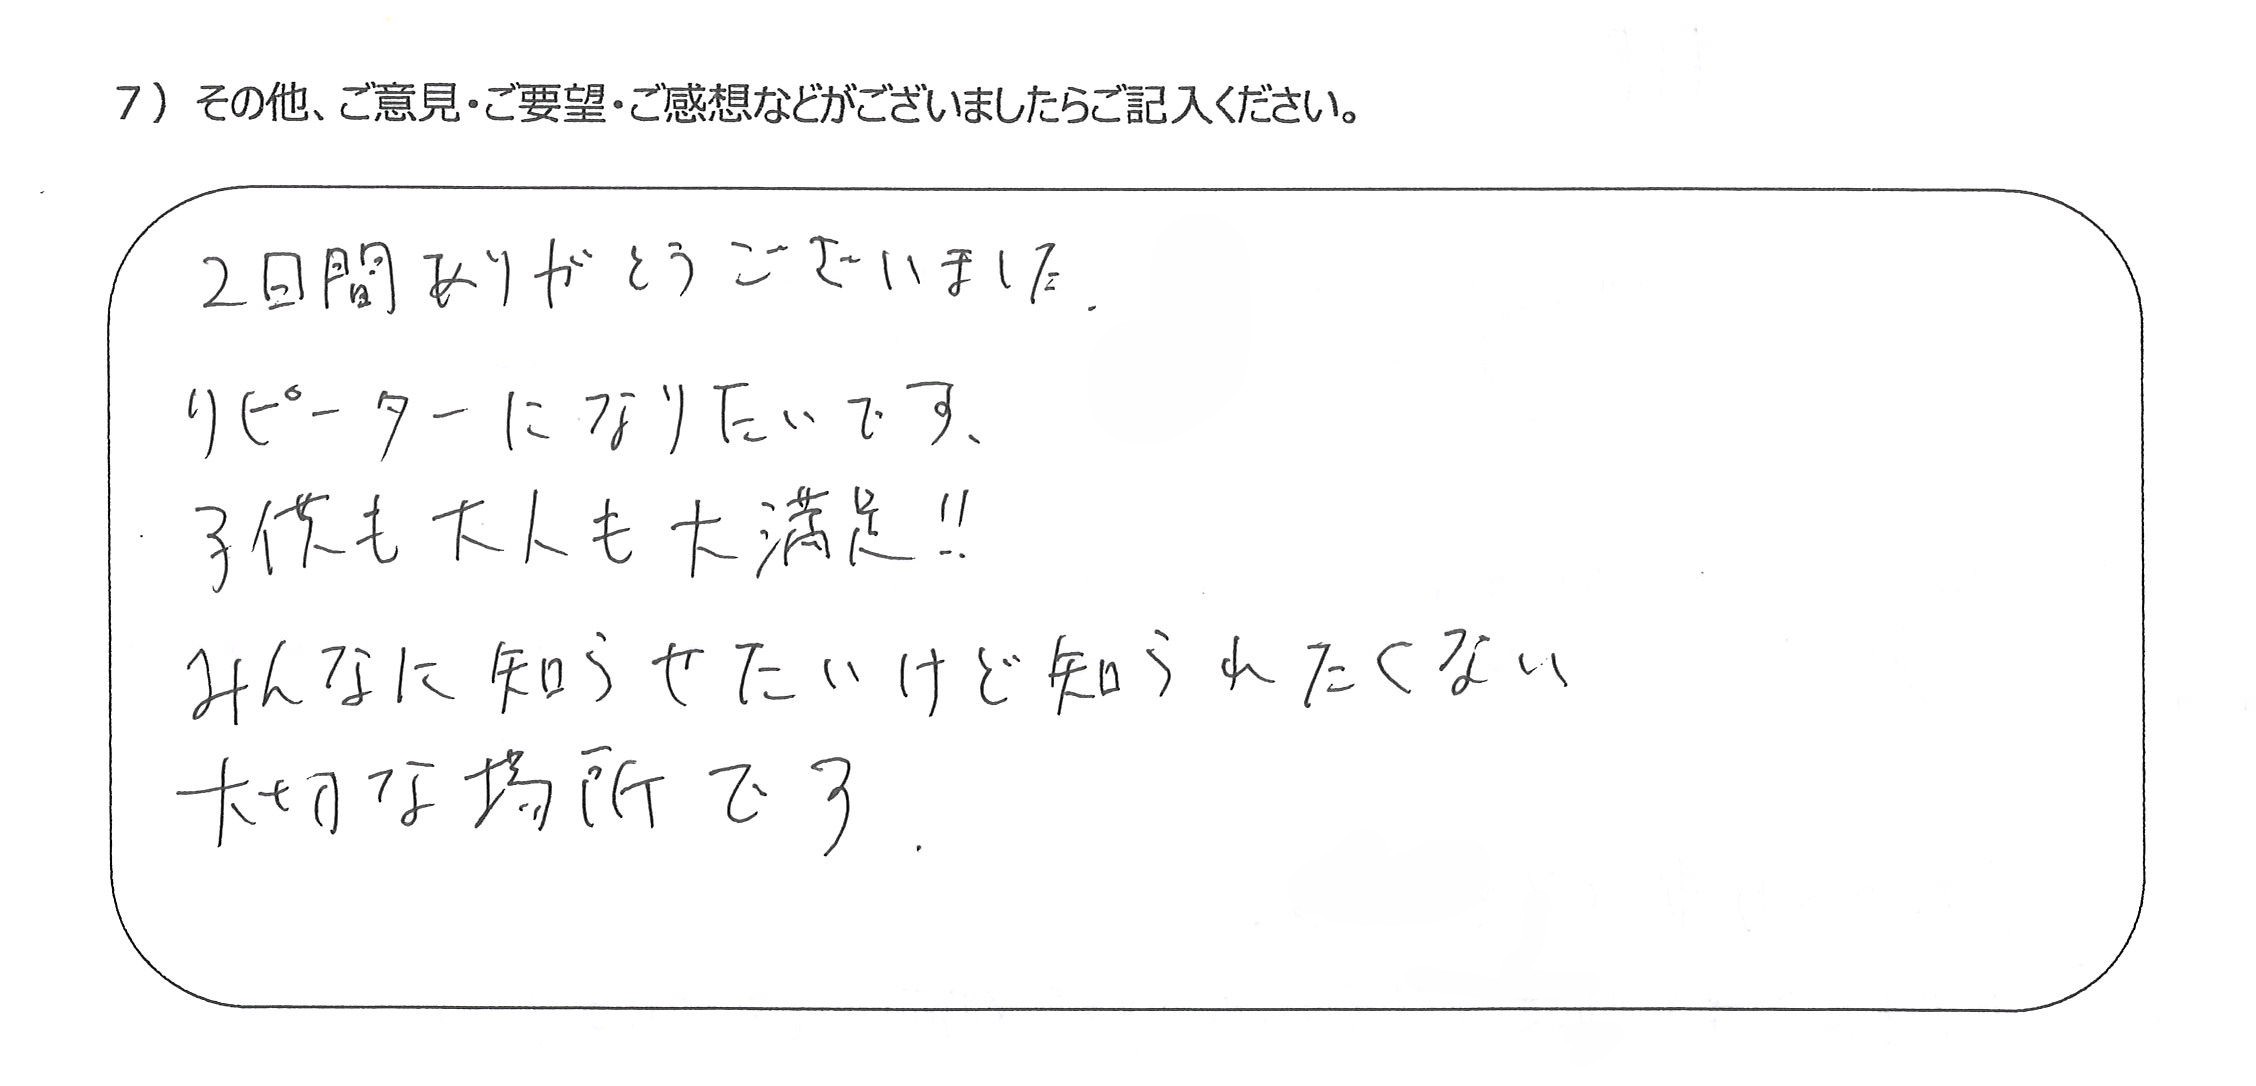 7）その他、ご意見・ご要望・ご感想などがございましたらご記入ください。
2日間ありがとうございました.
リピーターになりたいです、
子供も大人も大満足!!
みんなに知らせたいけど知られたくない
大切な場所です.